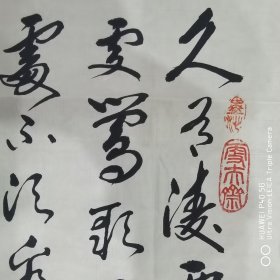 久有凌雲
處鶯歌
處不須看
HUAWEI P40 5G
Ultra Vision LEICA Triple Camera